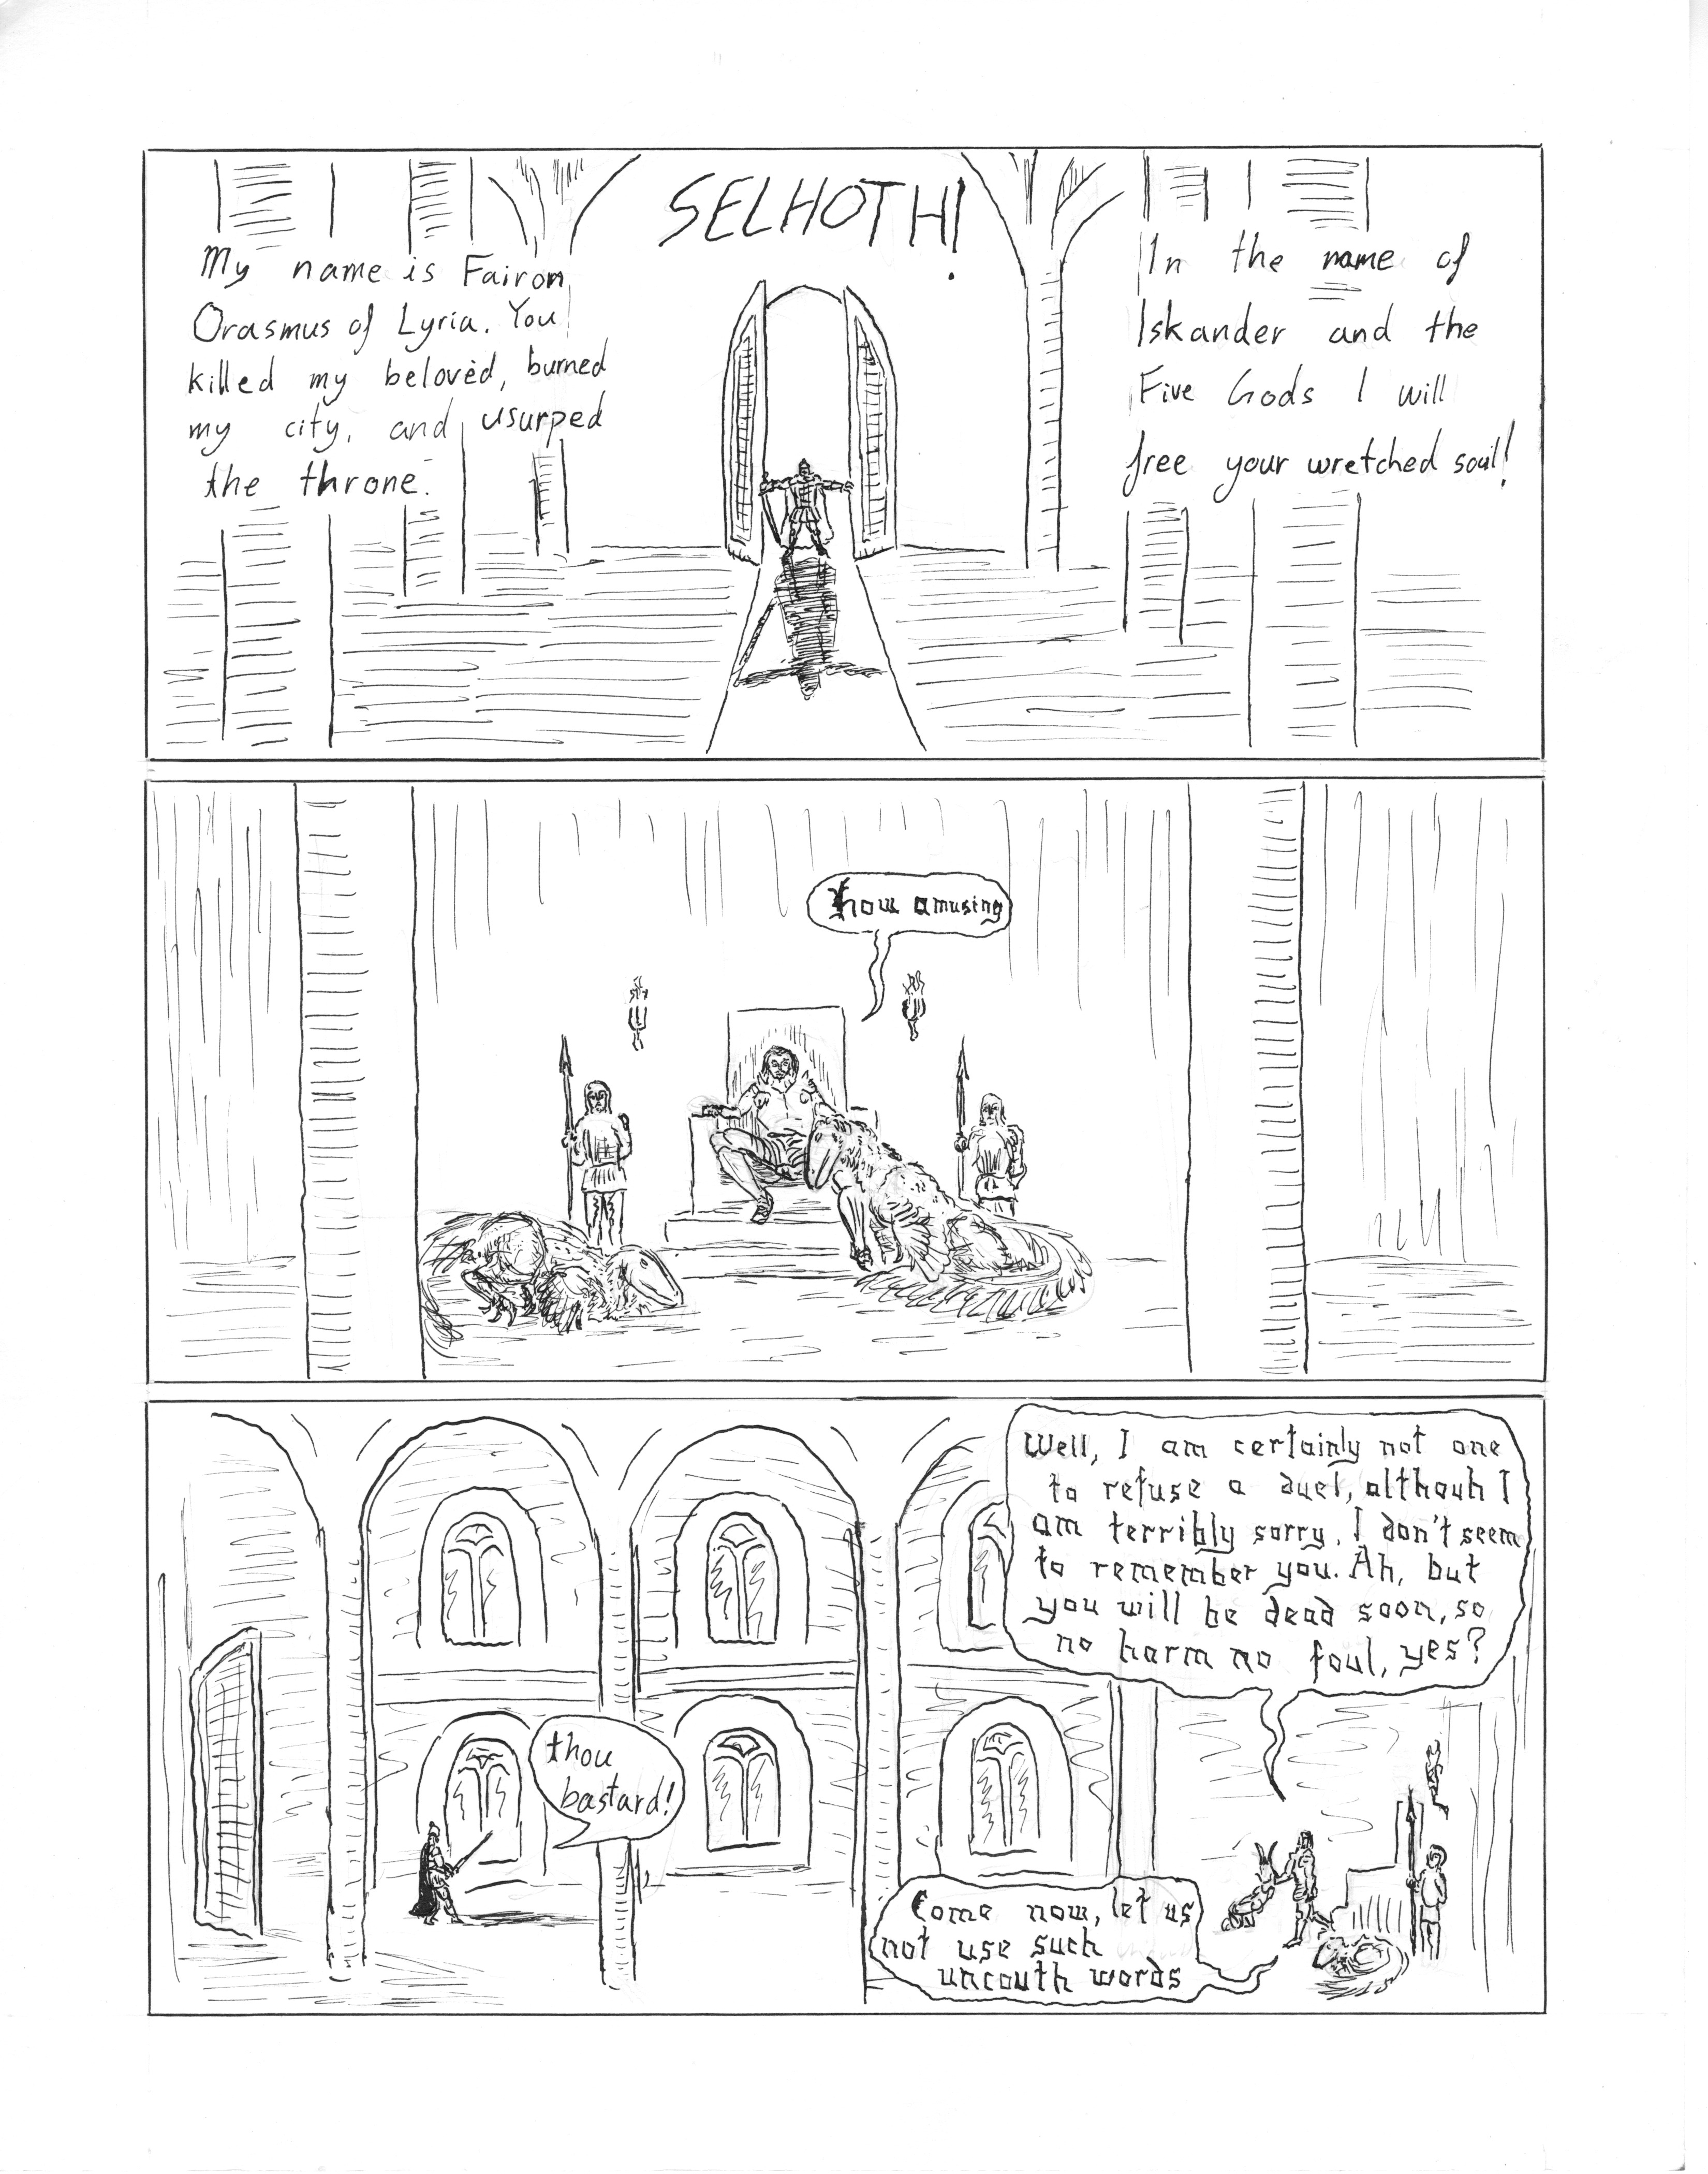 SELHOTH!
My name is Fairon
Orasmus of Lyria. You
killed my beloved, burned
my city, and usurped
the throne.
In the name of
Iskander and the
Five Gods I will
free your wretched soul!
how amusing
Well, I am certainly not one
to refuse a duel, althouh I
am terribly sorry, I don't seem
to remember you. Ah, but
you will be dead soon, so
no harm no foul, yes?
thou
bastard!
Come now, let us
not use such
uncouth words